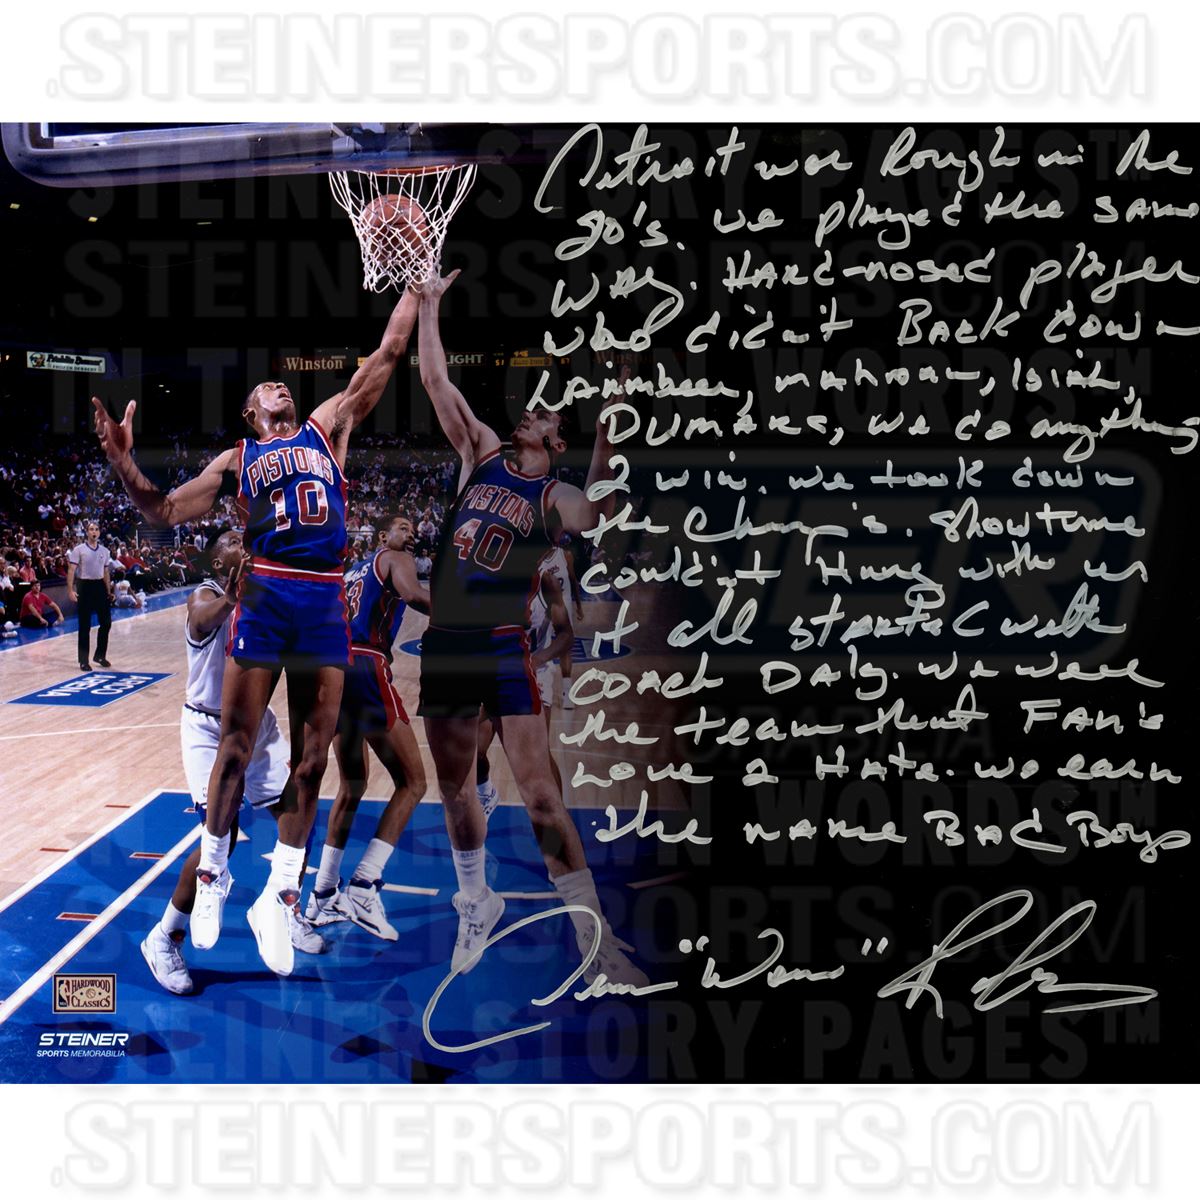 .STEINERSPORTS.COM
Detroit was Rough in the
80's. we played the same
way. Hard-nosed player
who didn't Back down
Laimbeer, mahorn, Isiah,
DUMARS, we do anything
2 win. we took down
the Champ's. Showtime
couldn't Hang with us
it all started with
COACH DALY. we were
the team that FAN's
Love 2 Hate. we earn
the name BAD Boys
"Worm"
Winston
BUD LIGHT
Winston
PISTONS
10
PISTONS
40
3
HARDWOOD
CLASSICS
STEINER
SPORTS MEMORABILIA
STEINER STORY PAGES™
STEINERSPORTS.COM
IN THEIR OWN WORDS™
STEINER
SPORTS MEMORABILIA
IN THEIR OWN WORDS™
STEINERSPORTS.COM
STEINER STORY PAGES™
.STEINERSPORTS.COM